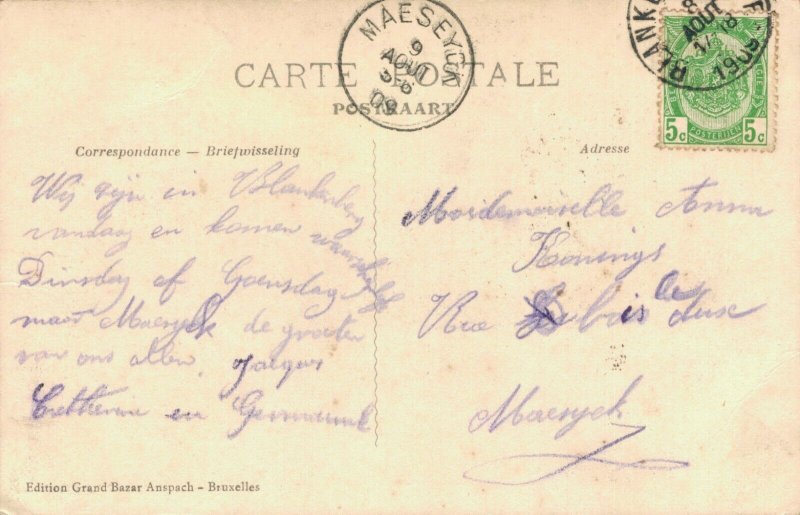 MAESEYCK
9
AOUT
09
BLANKE
8
AOUT
19
CARTE POSTALE
POSTKAART
5c POSTERIJEN 5c
Correspondance — Briefwisseling
Adresse
Wij zijn in Blankenberg
vandaag en komen waarschijnlijk
Dinsdag of Goensdag
naar Maesyck de groeten
van ons allen. Jacques
Catherine en Germaine
Maidemoiselle Anna
Konings
Rue bois le duc
Maesyck
Edition Grand Bazar Anspach – Bruxelles